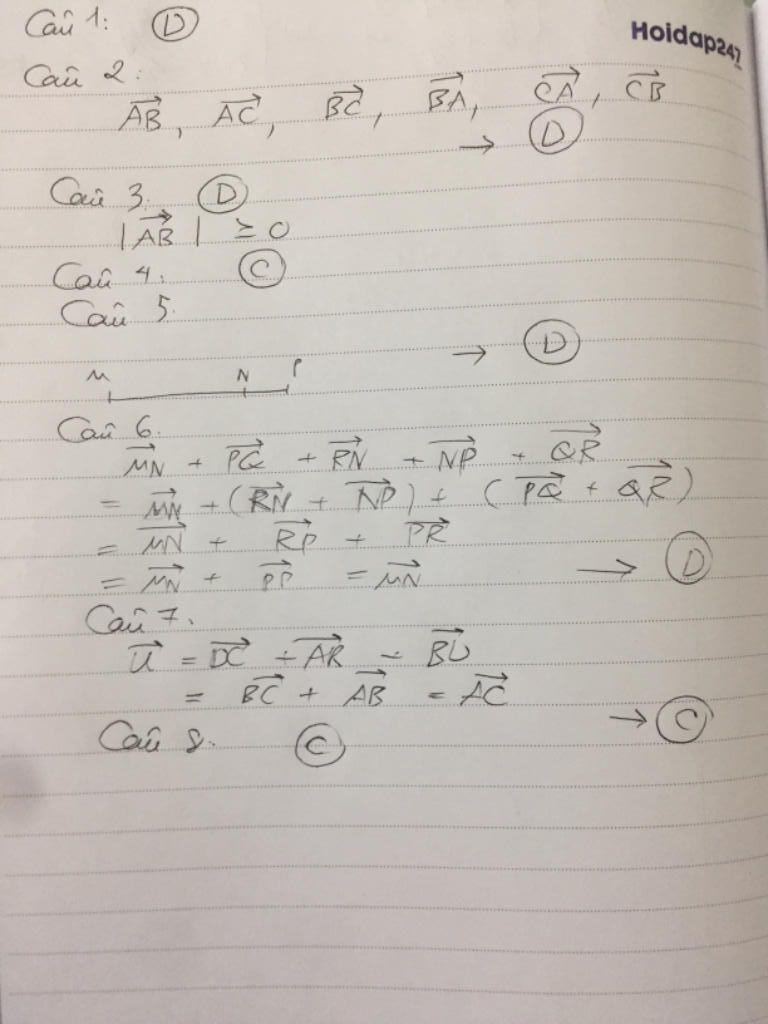 Câu 1: D
Hoidap247
Câu 2:
AB→, AC→, BC→, BA→, CA→, CB→
→ D
Câu 3. D
|AB→| ≥ 0
Câu 4. C
Câu 5.
→ D
M N P
Câu 6.
MN→ + PQ→ + RN→ + NP→ + QR→
= MN→ + (RN→ + NP→) + (PQ→ + QR→)
= MN→ + RP→ + PR→
= MN→ + PP→ = MN→ → D
Câu 7.
U→ = DC→ + AB→ − BD→
= BC→ + AB→ = AC→
→ C
Câu 8. C